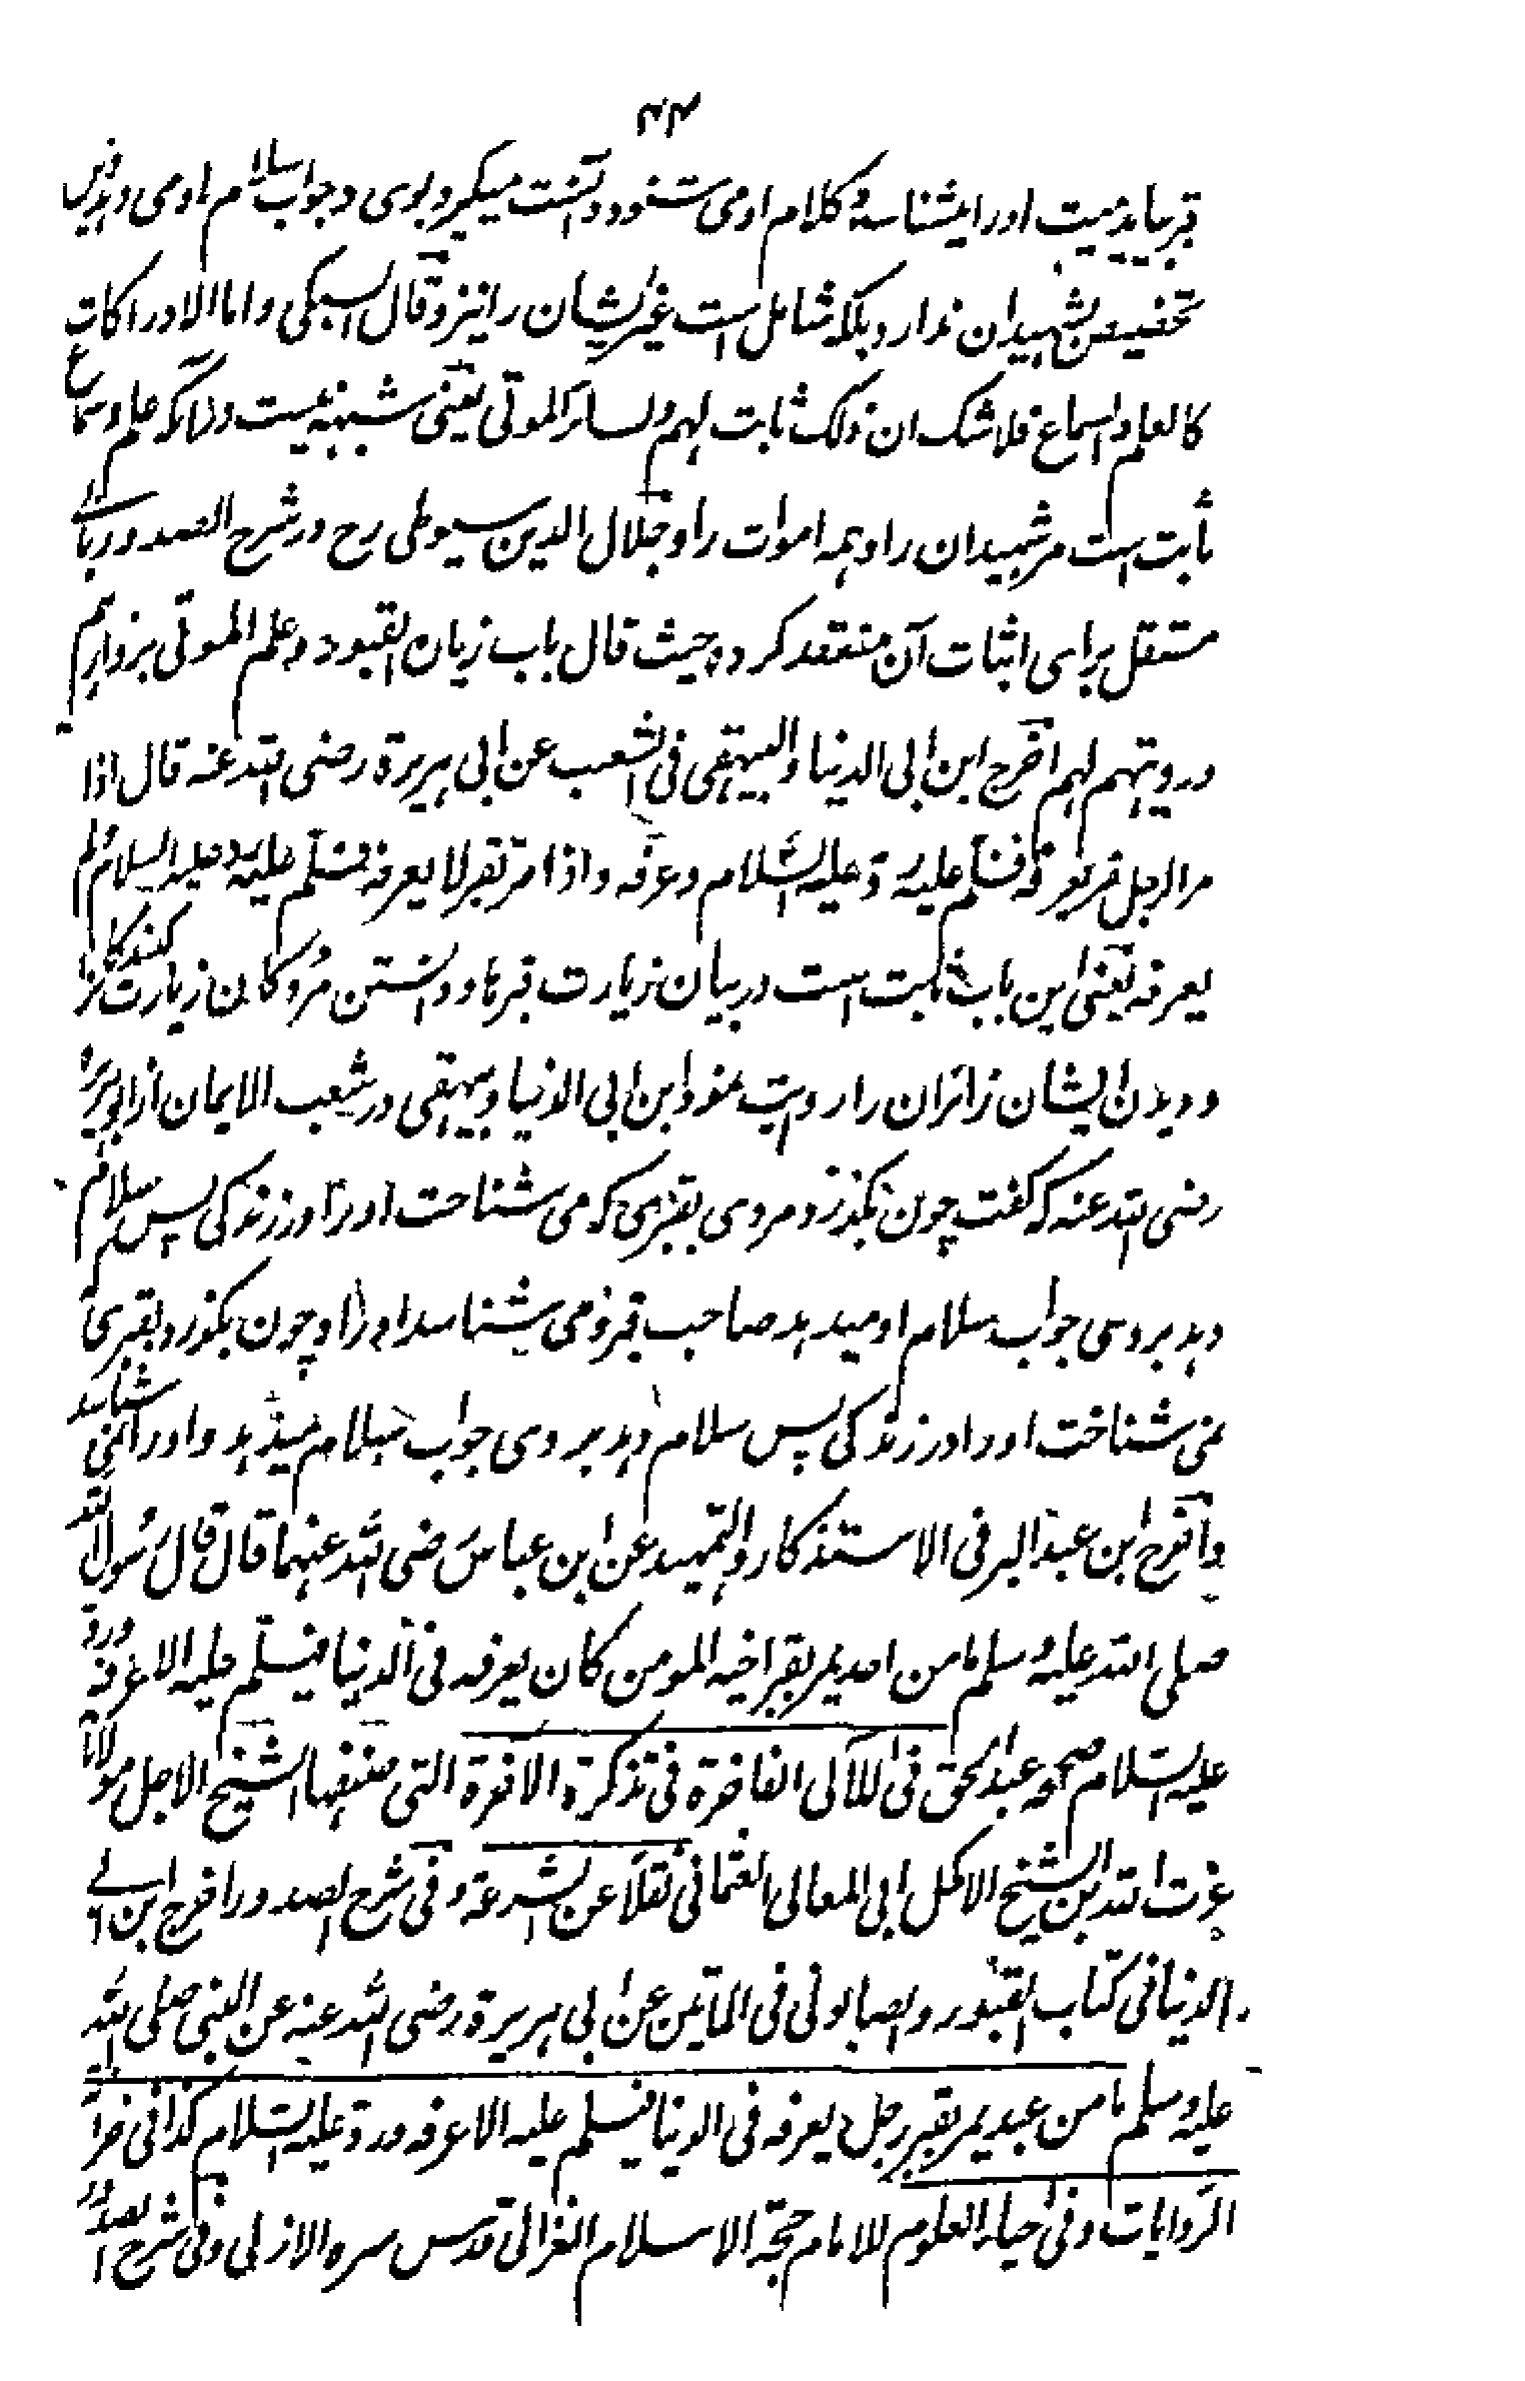 ۴۴
قبر بیاید میت اورا میشناسد و کلام او می شنود و انست میگیرد بوی و جواب سلام او می دهد و این
تخصیص بشهیدان ندارد بلکه شامل است غیر ایشان را نیز و قال السبکی و اما الادراکات
کالعلم و السماع فلا شک ان ذلک ثابت لهم و لسائر الموتی یعنی شبهه نیست درآنکه علم و سماع
ثابت است مر شهیدان را و همه اموات را و جلال الدین سیوطی رح در شرح الصدور بابی
مستقل برای اثبات آن منعقد کرده حیث قال باب زیارة القبور و علم الموتی بزوارهم
و رویتهم لهم اخرج ابن ابی الدنیا و البیهقی فی الشعب عن ابی هریرة رضی الله عنه قال اذا
مر الرجل بقبر یعرفه فسلم علیه رد علیه السلام و عرفه و اذا مر بقبر لا یعرفه فسلم علیه رد علیه السلام و لم
یعرفه یعنی این باب ثابت است در بیان زیارت قبرها و دانستن مردگان زیارت کنندگان را
و دیدن ایشان زائران را روایت نمود ابن ابی الدنیا و بیهقی در شعب الایمان از ابوهریره
رضی الله عنه که گفت چون بگذرد مردی بقبری که می شناخت اورا در زندگی پس سلام
دهد بر وی جواب سلام او میدهد صاحب قبر و می شناسد اورا و چون بگذرد بقبری که
نمی شناخت اورا در زندگی پس سلام دهد بر وی جواب سلام میدهد و اورا نمی شناسد
و اخرج ابن عبد البر فی الاستذکار و التمهید عن ابن عباس رضی الله عنهما قال قال رسول الله
صلی الله علیه وسلم ما من احد یمر بقبر اخیه المومن کان یعرفه فی الدنیا فیسلم علیه الا عرفه و رد
علیه السلام صححه عبد الحق فی اللآلی الفاخرة فی تذکرة الآخرة التی صنفها الشیخ الاجل مولانا
عزت الله ابن الشیخ الاکمل ابی المعالی العثمانی نقلا عن الشرعة و فی شرح الصدور اخرج ابن ابی
الدنیا فی کتاب القبور و الصابونی فی المأتین عن ابی هریرة رضی الله عنه عن النبی صلی الله
علیه وسلم ما من عبد یمر بقبر رجل یعرفه فی الدنیا فیسلم علیه الا عرفه و رد علیه السلام کذا فی خزانة
الروایات و فی احیاء العلوم للامام حجة الاسلام الغزالی قدس سره الازلی و فی شرح الصدور